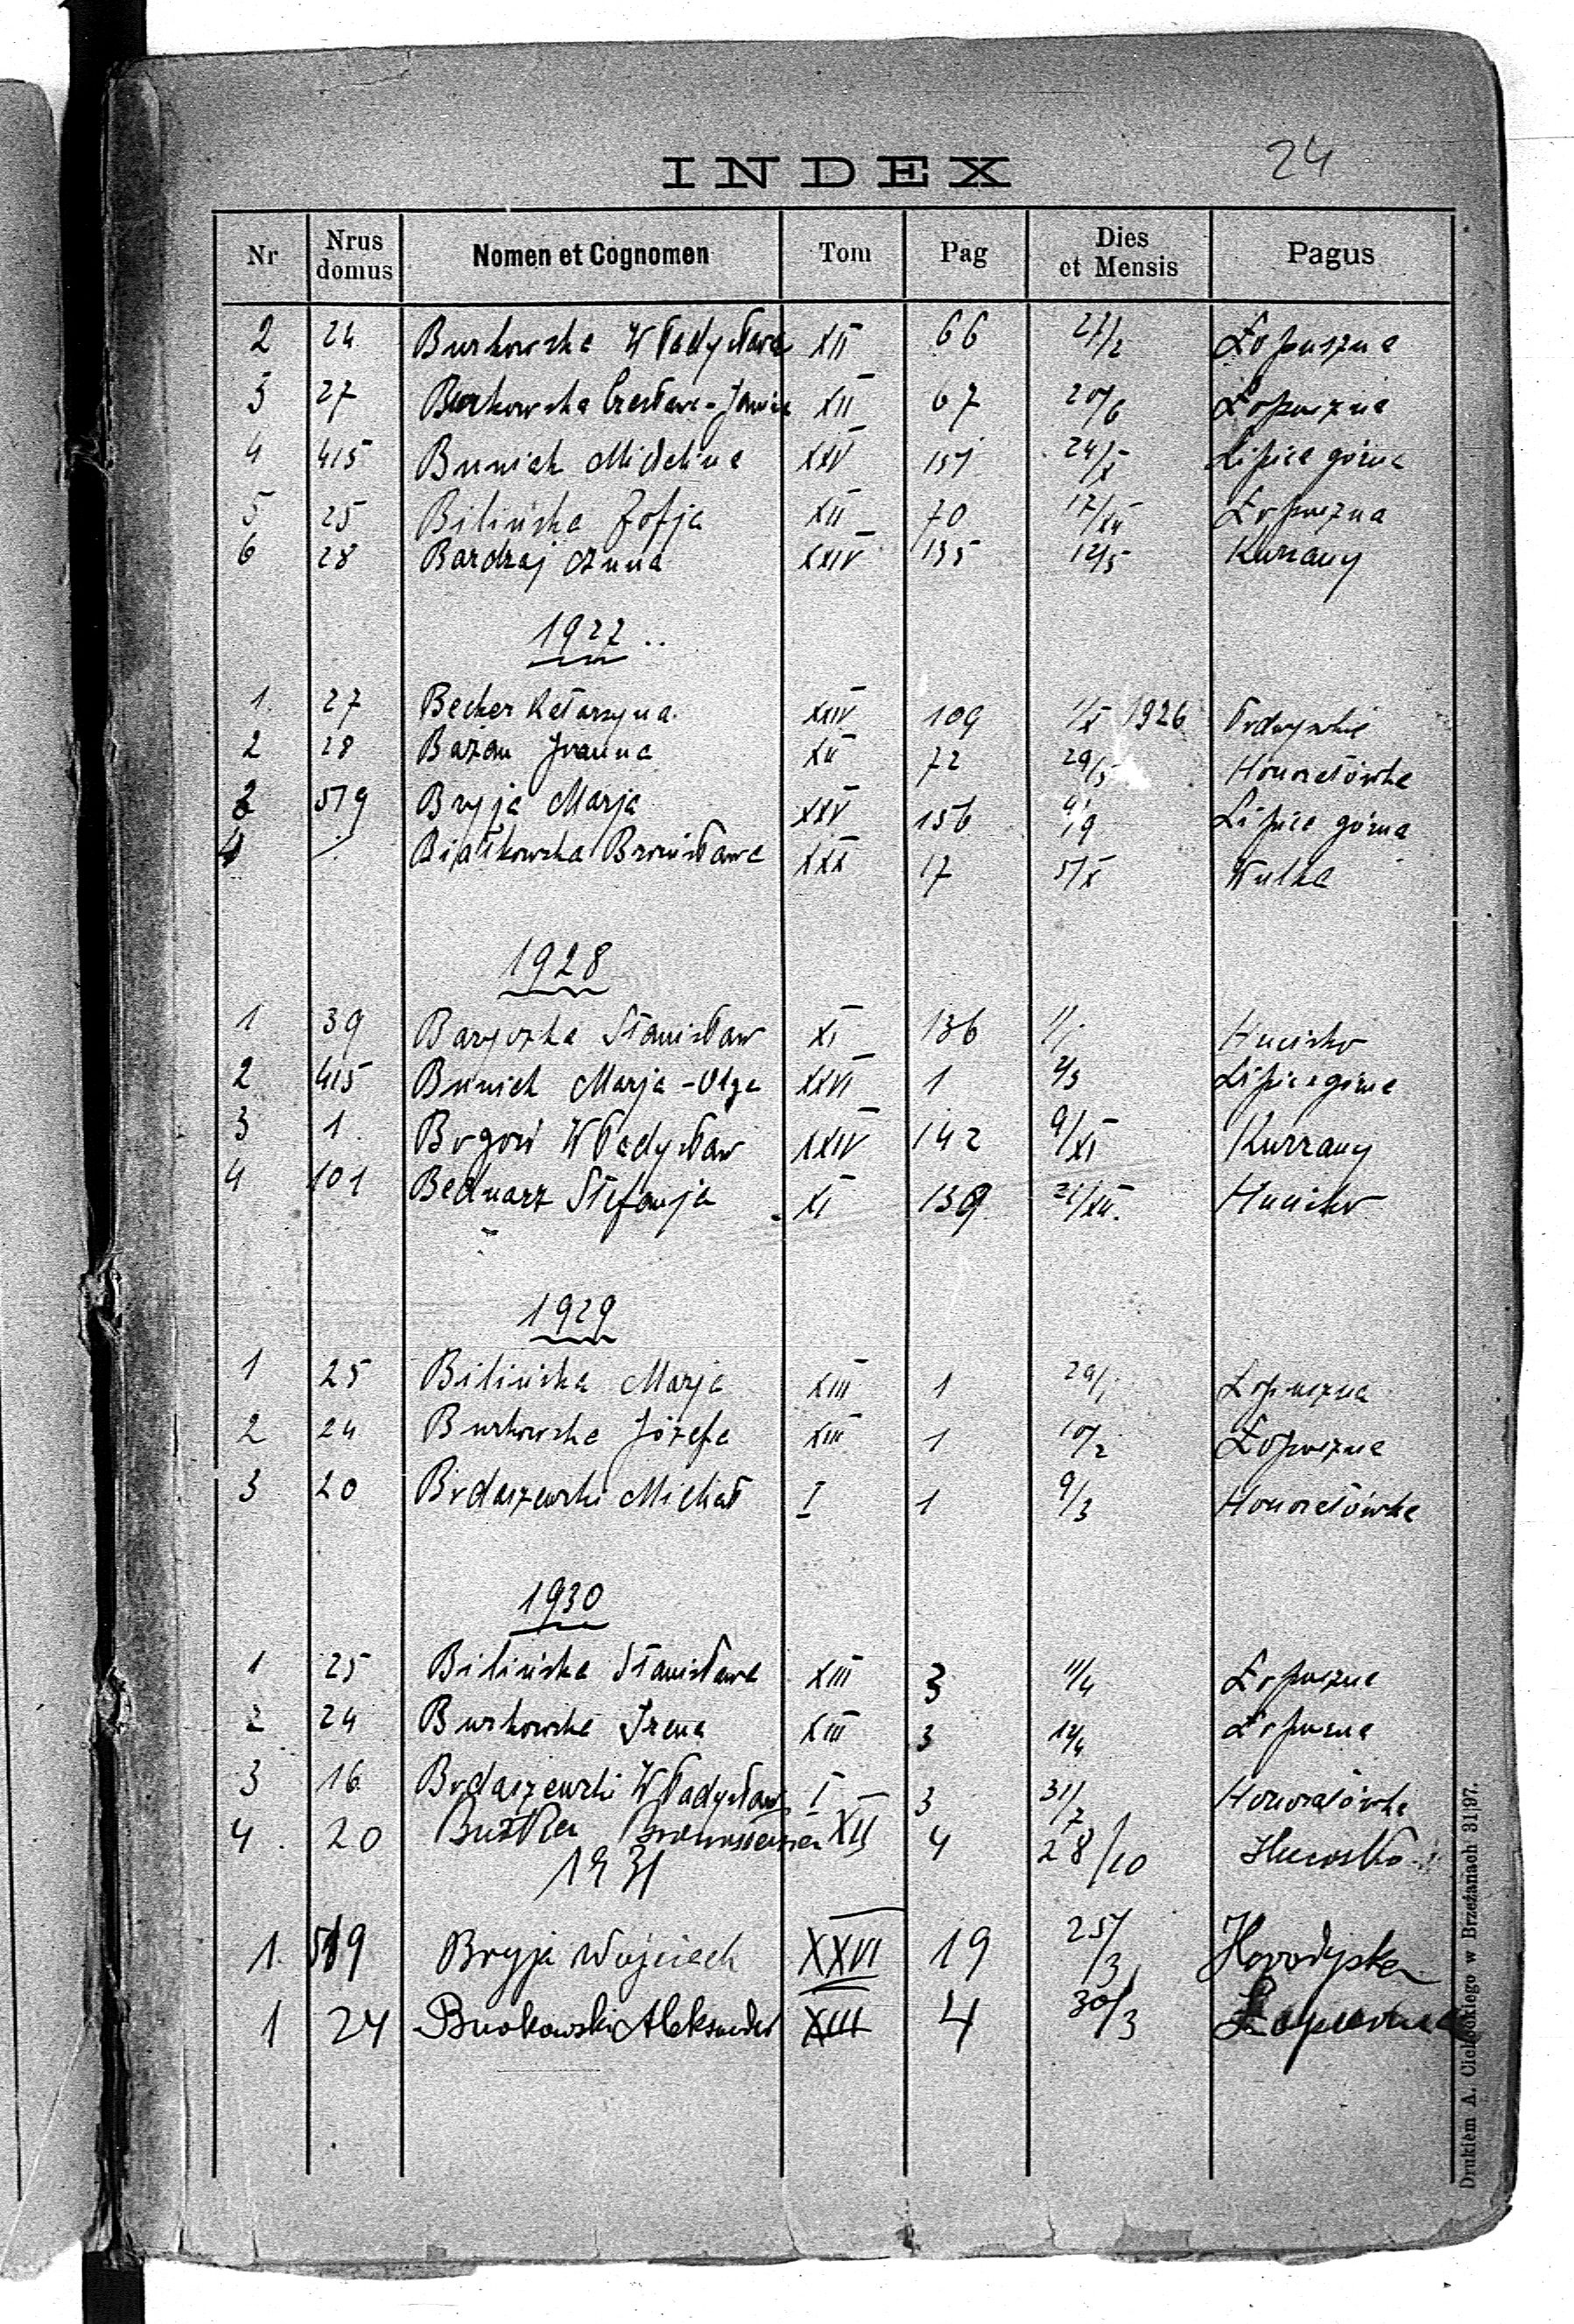 24
INDEX
Nr | Nrus domus | Nomen et Cognomen | Tom | Pag | Dies et Mensis | Pagus
2 24 Burkowska Władysława XII 66 27/2 Łopuszna
3 27 Burkowska Czesława-Janina XII 67 20/6 Łopuszna
4 415 Buniak XXV 151 24/X Lipica górna
5 25 Bilińska Zofja XII 70 17/XII Łopuszna
6 28 Bardzaj Anna XXIV 135 12/5 Kurzany
1927
1. 27 Becker Katarzyna XXIV 109 1926
2 28 Bażan Joanna XII 72 29/5 Honoratówka
3 519 Bryja Marja XXV 156 Lipica górna
4 Białkowska Bronisława XXX 17 5/X Wulka
1928
1 39 Baryczka Stanisław XI 136 Hucisko
2 415 Buniak Marja-Olga XXVI 1 2/3 Lipica górna
3 1. Bogoń Władysław XXIV 142 9/XI Kurzany
4 101 Bednarz Stefanja XI 139 21/XII. Hucisko
1929
1 25 Bilińska Marja XIII 1 29/1 Łopuszna
2 24 Burkowska Józefa XIII 1 10/2 Łopuszna
3 20 Bodaszewski Michał I 1 9/3 Honoratówka
1930
1 25 Bilińska Stanisława XIII 3 11/4 Łopuszna
2 24 Burkowska Irena XIII 3 12/4 Łopuszna
3 16 Bodaszewski Władysław I 3 31/7 Honoratówka
4. 20 XII 4 28/10 Hucisko
1931
1. 519 Bryja Wojciech XXVI 19 25/3
1 24 Burkowski Aleksander XIII 4 30/3 Łopuszna
Drukiem A. Cichockiego w Brzeżanach 31|97.